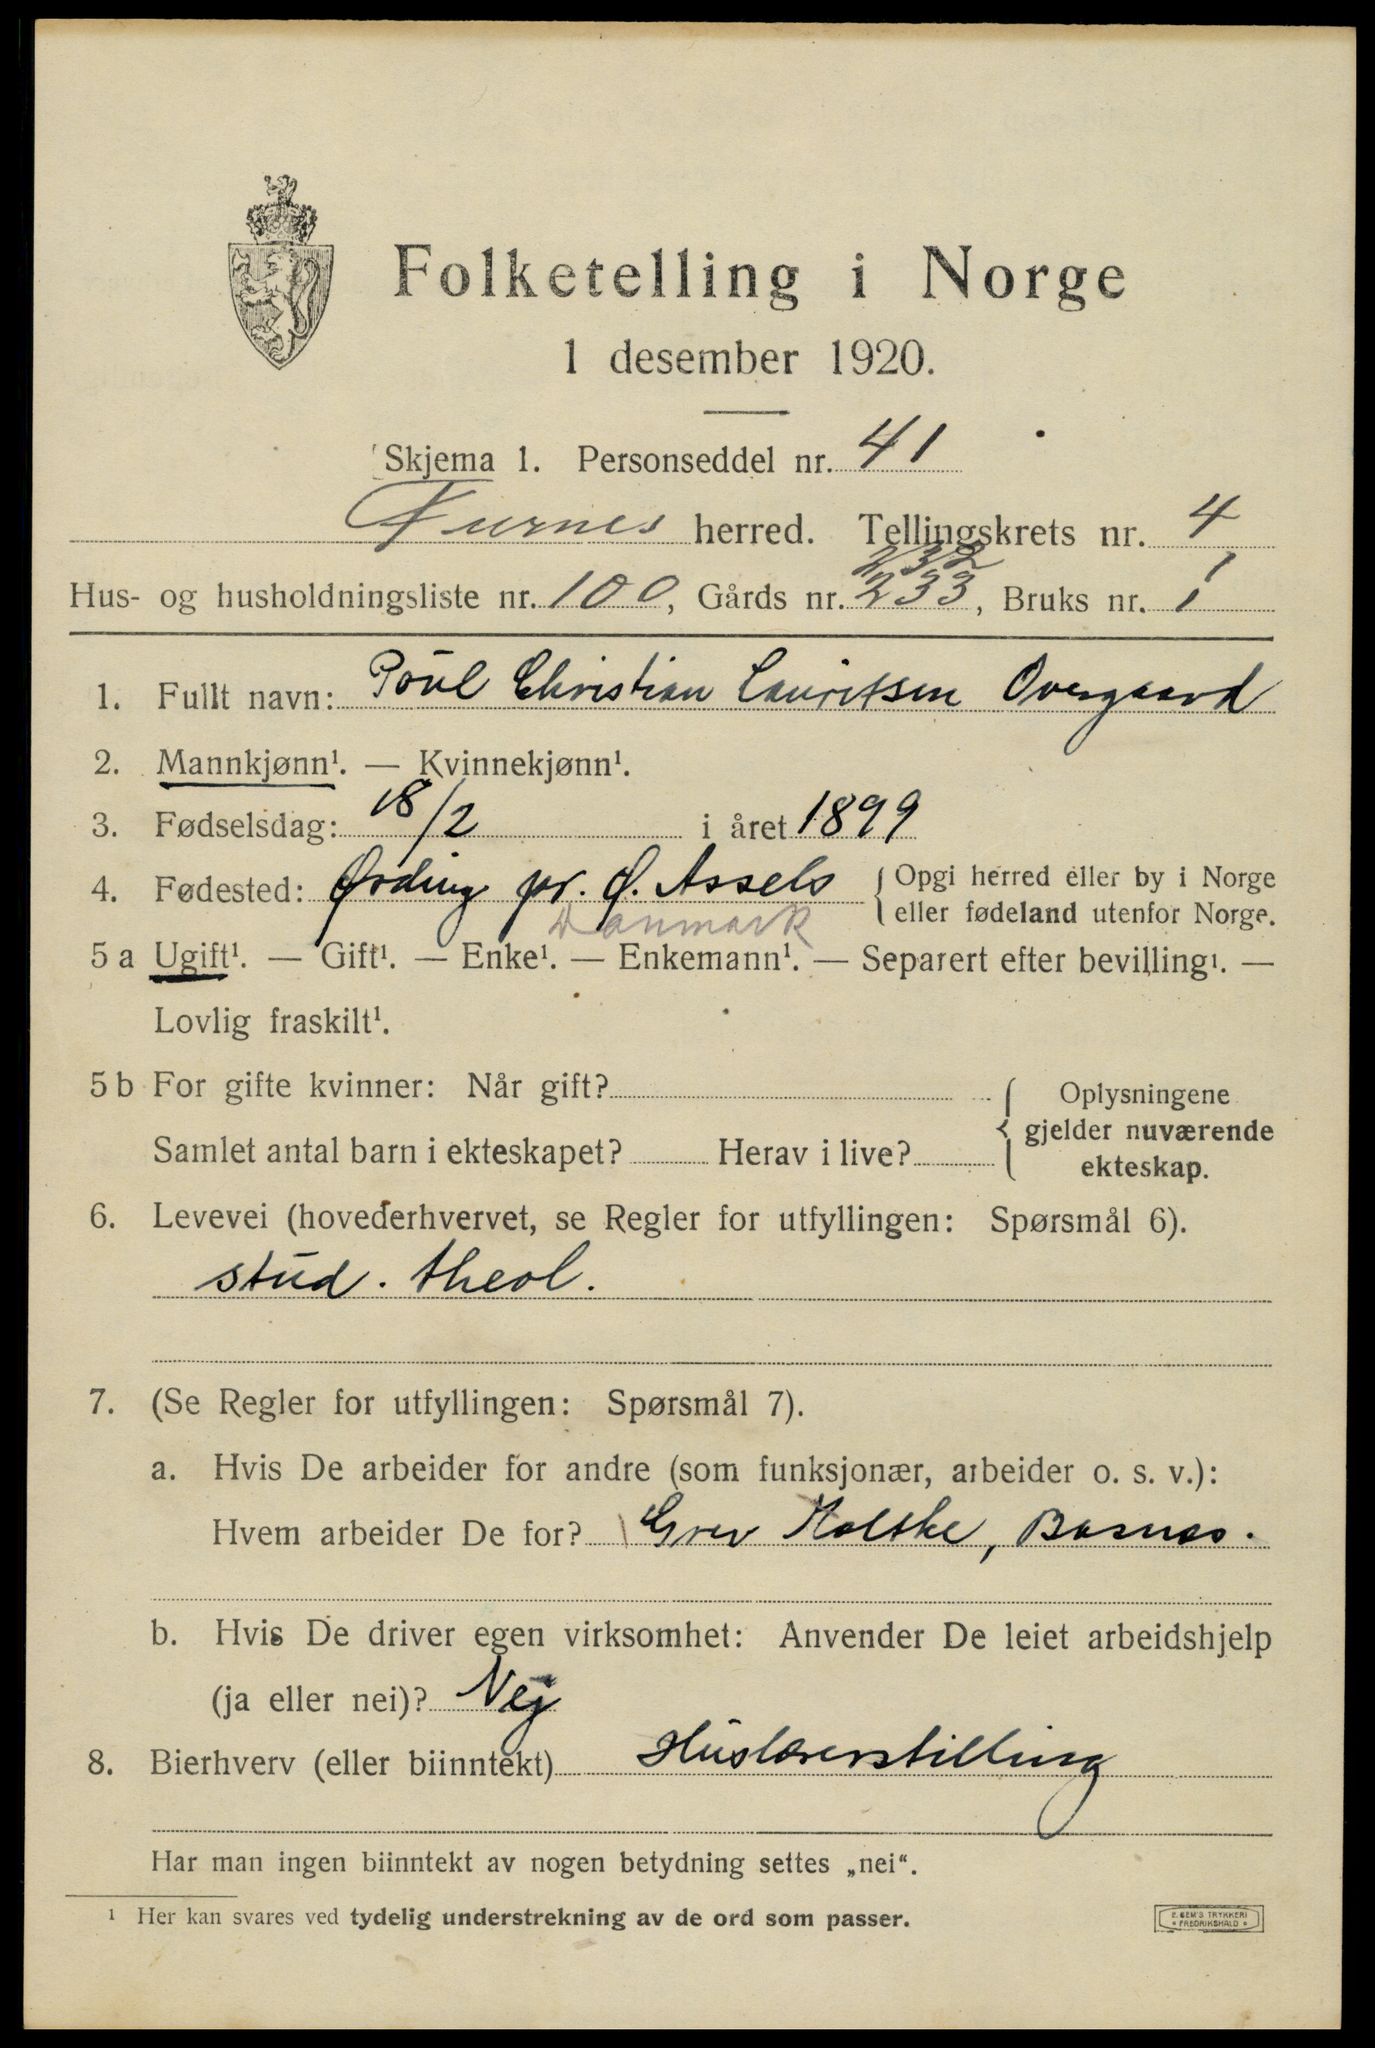 Folketelling i Norge
1 desember 1920.
Skjema 1. Personseddel nr. 41
Furnes herred. Tellingskrets nr. 4
232 1
Hus- og husholdningsliste nr. 100, Gårds nr. 233, Bruks nr. 1
1. Fullt navn: Poul Christian Lauritsen Overgaard
2. Mannkjønn¹. — Kvinnekjønn¹.
3. Fødselsdag: 18/2 i året 1899
4. Fødested: Ørding pr. Ø. Assels { Opgi herred eller by i Norge
eller fødeland utenfor Norge.
Danmark
5 a Ugift¹. — Gift¹. — Enke¹. — Enkemann¹. — Separert efter bevilling¹. —
Lovlig fraskilt¹.
5 b For gifte kvinner: Når gift? { Oplysningene
gjelder nuværende
Samlet antal barn i ekteskapet? Herav i live? ekteskap.
6. Levevei (hovederhvervet, se Regler for utfyllingen: Spørsmål 6).
stud. theol.
7. (Se Regler for utfyllingen: Spørsmål 7).
a. Hvis De arbeider for andre (som funksjonær, arbeider o. s. v.):
Hvem arbeider De for? Grev Moltke, Basnæs.
b. Hvis De driver egen virksomhet: Anvender De leiet arbeidshjelp
(ja eller nei)? Nej
8. Bierhverv (eller biinntekt) Huslærerstilling
Har man ingen biinntekt av nogen betydning settes „nei“.
¹ Her kan svares ved tydelig understrekning av de ord som passer.
E. SEM'S TRYKKERI
• FREDRIKSHALD •